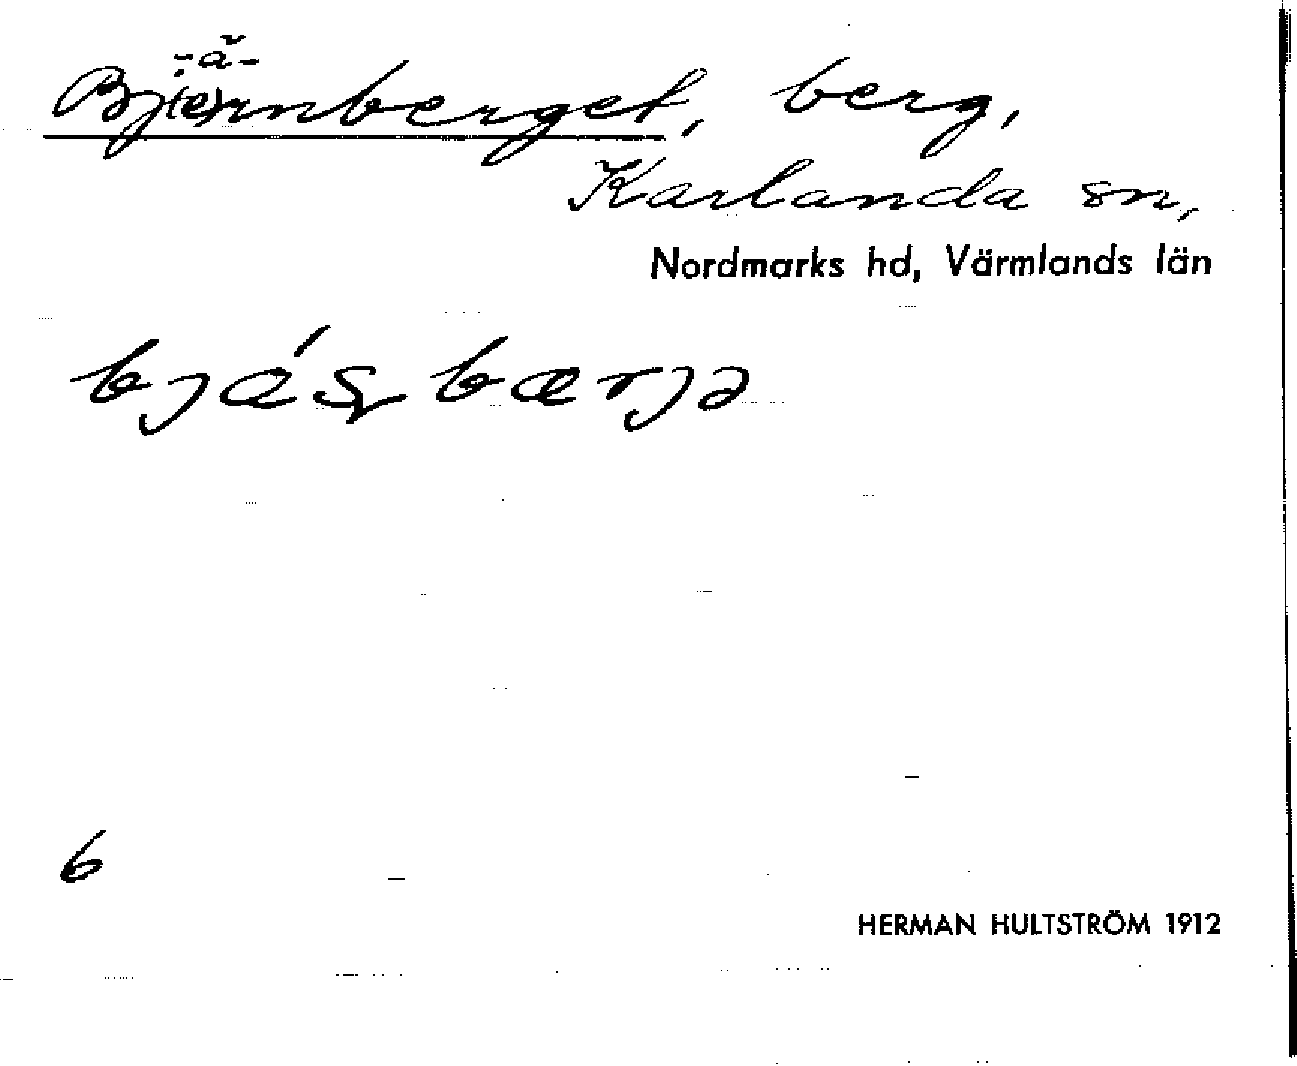 -ä-
Bj(e)rnberget, berg,
Karlanda sn,
Nordmarks hd, Värmlands län
6
HERMAN HULTSTRÖM 1912